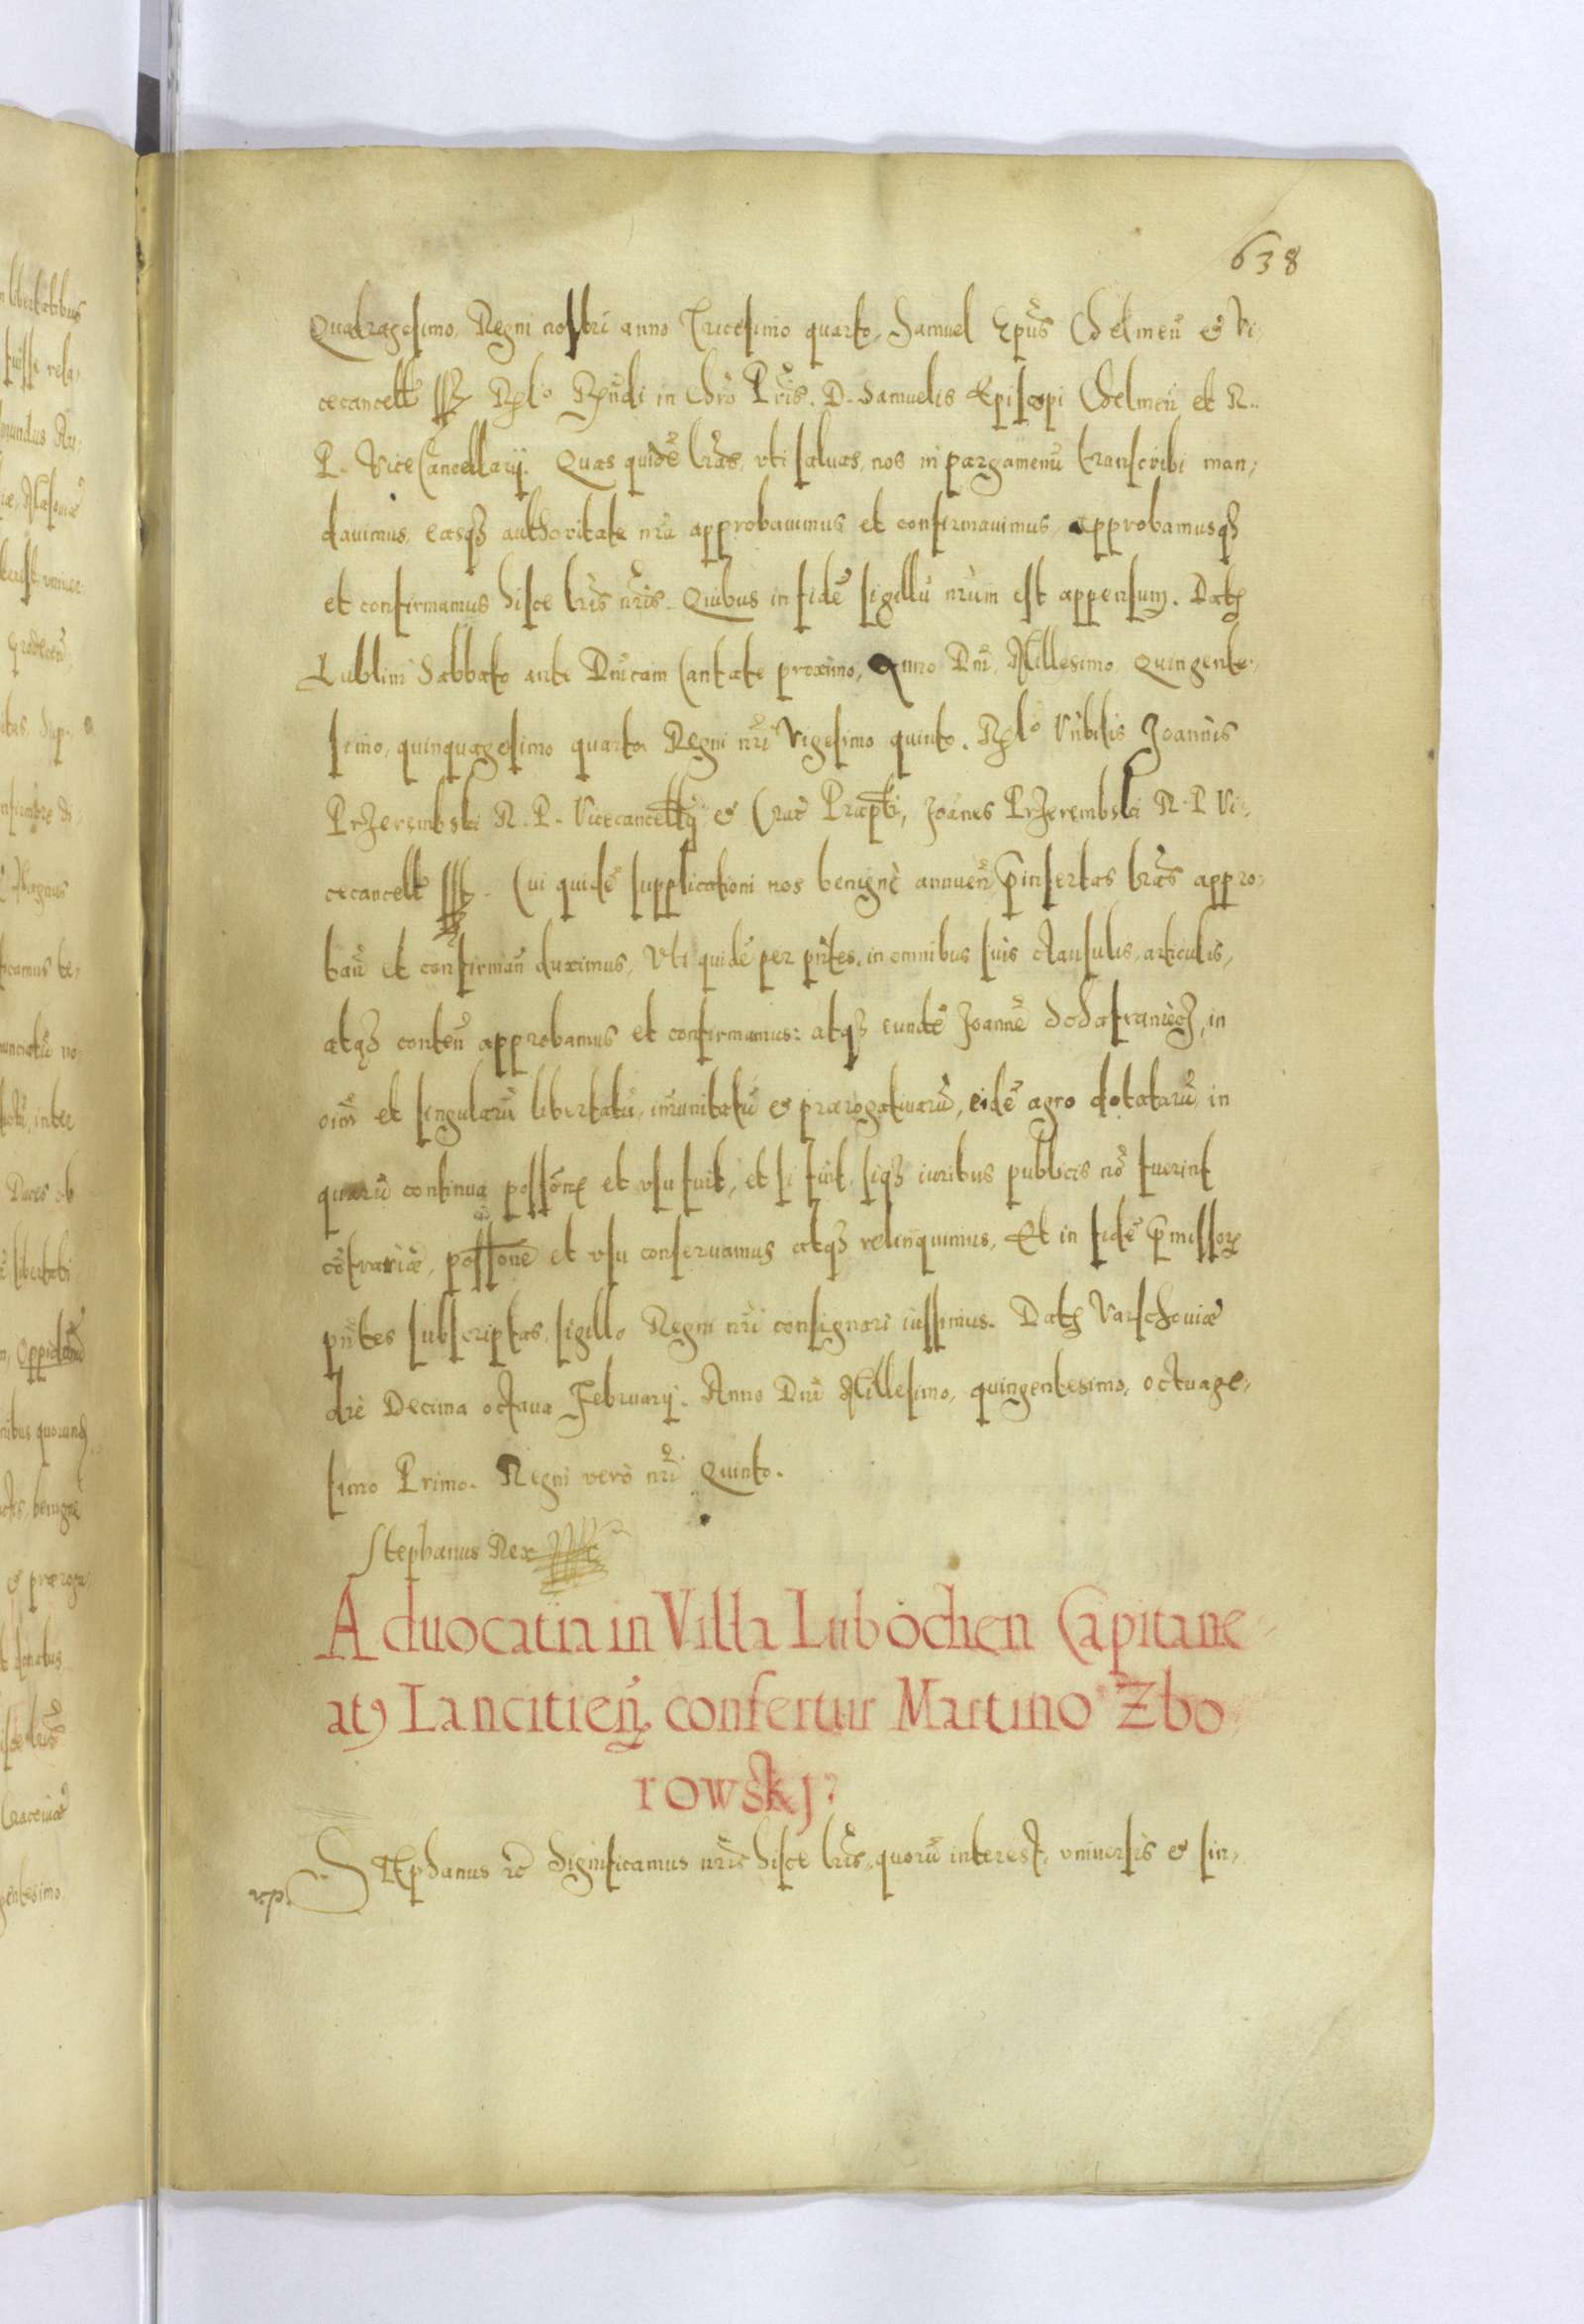 638
Quatragesimo, Regni nostri anno Tricesimo quarto, Samuel Epũs Chelmeñ & Vi,
cecancell Rlo Rñdi in Chrõ Pris. D. Samuelis Episcopi Chelmeñ et R.
P. ViceCancellarij. Quas quidẽ lras, vti saluas, nos in pargamenũ transcribi man,
dauimus, easq3 authoritate nrã approbauimus et confirmauimus, approbamusq3
et confirmamus hisce lris nris. Quibus in fidẽ sigillũ nrum est appensum. Dat
Lublini Sabbato ante Dnicam Cantate proximo, Anno Dni, Millesimo Quingente,
simo, quinquagesimo quarto Regni nri Vigesimo quinto. Rlo Vnbilis Joannis
Przerembski R. P. Vicecancellij & Crac Praepti, Joanes Przerembski R. P. Vi,
cecancell. Cui quidẽ supplicationi nos benignè annueñ pinsertas lras appro,
bañ et confirmañ duximus, Vti quidẽ per pñtes, in omnibus suis clausulis, articulis,
atq3 conteñ approbamus et confirmamus: atq3 eundẽ Joannẽ Schafraniecz, in
oim et singularũ libertatũ, imunitatũ & praerogatiuarũ, eidẽ agro dotatarũ, in
quarũ continua possone et vsu fuit, et si fuit, siq3 iuribus publicis nõ fuerint
cõtrariae, possone et vsu conseruamus atq3 relinquimus, Et in fidẽ pmissor
pñtes subscriptas, sigillo Regni nri consignari iussimus. Dat Varschouiae
die Decima octaua Februarij. Anno Dni Millesimo, quingentesimo, octuage,
simo Primo. Regni verò nri Quinto.
Stephanus Rex
Aduocatia in Villa Lubochen Capitane
at9 Lancitieñ confertur Martino Zbo
rowskj
STEphanus rc Significamus nris hisce lris, quorũ interest, vniuersis & sin,
rp.